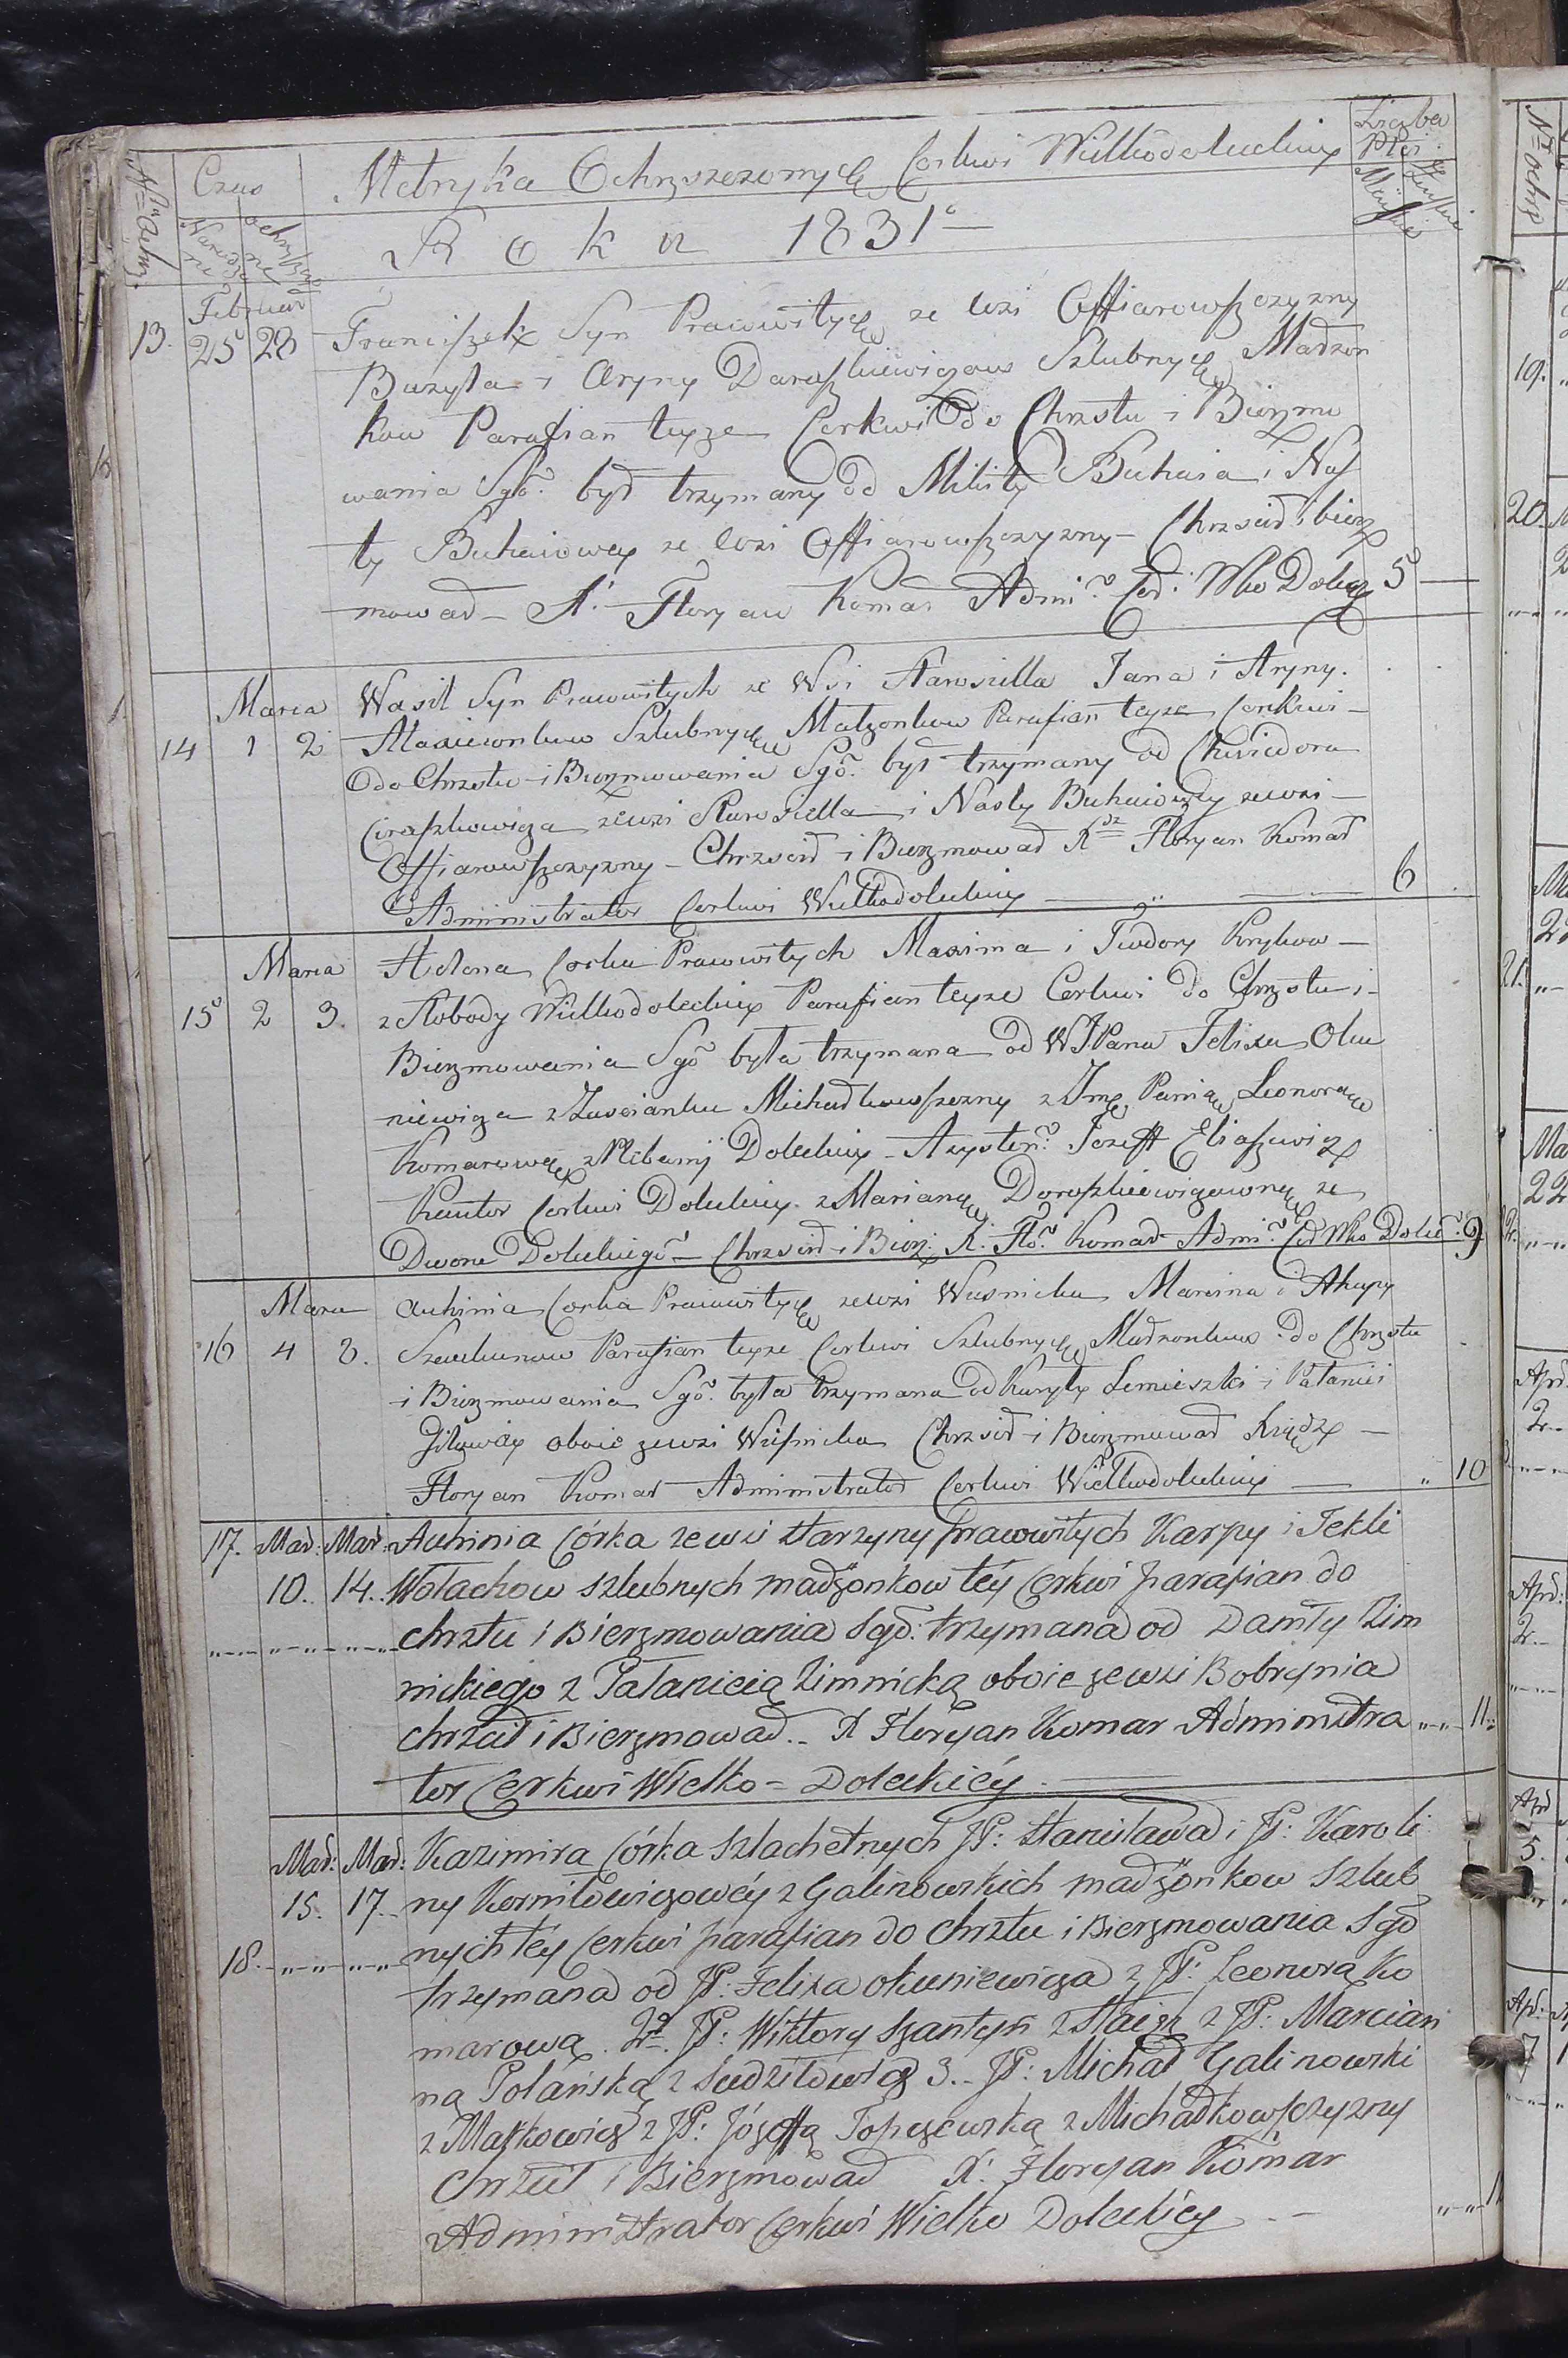 Nr ochrz.
Czas
Narodze nia
ochrzcze nia
Metryka Ochrzczonych Cerkwi Wielkodoleckiey
Liczba Płci
Męskiey
Żeńskiey
Roku 1831o
13.
Februar
25 28
Franciszek Syn Prawowitych ze wsi Offiarowszczyzny
Bazyla i Aryny Daraszkiewiczow Szlubnych Małżon
kow Parafian teyże Cerkwi do Chrztu i Bierzmo
wania Sgo. był trzymany od Mikity Buhaia i Nas
ty Buhaiowey ze wsi Offiarowszczyzny – Chrzcił i bierz
mował – X. Floryan Komar Admi: Cer: Wko Dolec
5
14
Marca
1 2
Wasil Syn Prawowitych ze Wsi Starosiella Jana i Aryny.
Maxiconkow Szlubnych Małżonkow Parafian teyże Cerkwi –
do Chrztu i Bierzmowania Sgo. był trzymany od Chwiedora
Ciraszkowicza zewsi Starosiella i Nasty Buhaiowey zewsi –
Offiarowszczyzny – Chrzcił i Bierzmował Xdz Floryan Komar
Administrator Cerkwi Wielkodoleckiey
6
15
Marca
2 3.
Helena Corka Prawowitych Maxima i Teodory Krykow –
z Słobody Wielkodoleckiey Parafian teyże Cerkwi do Chrztu i –
Bierzmowania Sgo była trzymana od WJPana Felixa Oku
niewicza z Zascianku Michałkowszczyzny z Jmę Panią Leonorą
Komarową z Plebanij Doleckiey – Asysten: Jozeff Eliaszewicz
Kantor Cerkwi Doleckiey z Marianą Doroszkiewiczowną ze
Dworu Doleckiego – Chrzcił i Bierz: X. Flo: Komar Admi: Cer Wko Dolec:
9
16
Marca
4 8.
Auhinia Corka Prawowitych zewsi Wusnicka Marcina i Ahapy
Szeukunow Parafian teyże Cerkwi Szlubnych Małżonkow do Chrztu
i Bierzmowania Sgo. była trzymana od Kuryły Lemieszki i Pałanii
Zilowey oboie zewsi Wusnicka Chrzcił i Bierzmował Xiądz –
Floryan Komar Administrator Cerkwi Wielkodoleckiey
10
17.
Mar: Mar:
10. 14.
Auhinia Córka zewsi Starzyny prawowitych Karpy i Tekli
Wołachow szlubnych małżonkow téy Cerkwi parafian do
chrztu i Bierzmowania Sgo: trzymana od Daniły Zim
nickiego z Pałanieią Zimnicką oboie zewsi Bobrynia
chrzcił i Bierzmował .. X Floryan Komar Administra
tor Cerkwi Wielko = Doleckiéy.
11
18.
Mar: Mar:
15. 17.
Kazimira Córka szlachetnych JP: Stanisława i JP: Karoli
ny Korniłowiczowéy z Galinowskich małżonkow szlub
nych téy Cerkwi parafian do chrztu i Bierzmowania Sgo
trzymana od JP: Felixa okuniewicza z JP: Leonorą Ko
marową. 2. JP: Wiktory Szantyr z Staigr z JP: Marcian
ną Polańską z Sudziłowicz 3. JP: Michał Galinowski
z Maśkowicz z JP: Józeffą Topczewską z Michałkowszczyzny
chrzcił i Bierzmował X: Floryan Komar
Administrator Cerkwi Wielko Doleckiéy